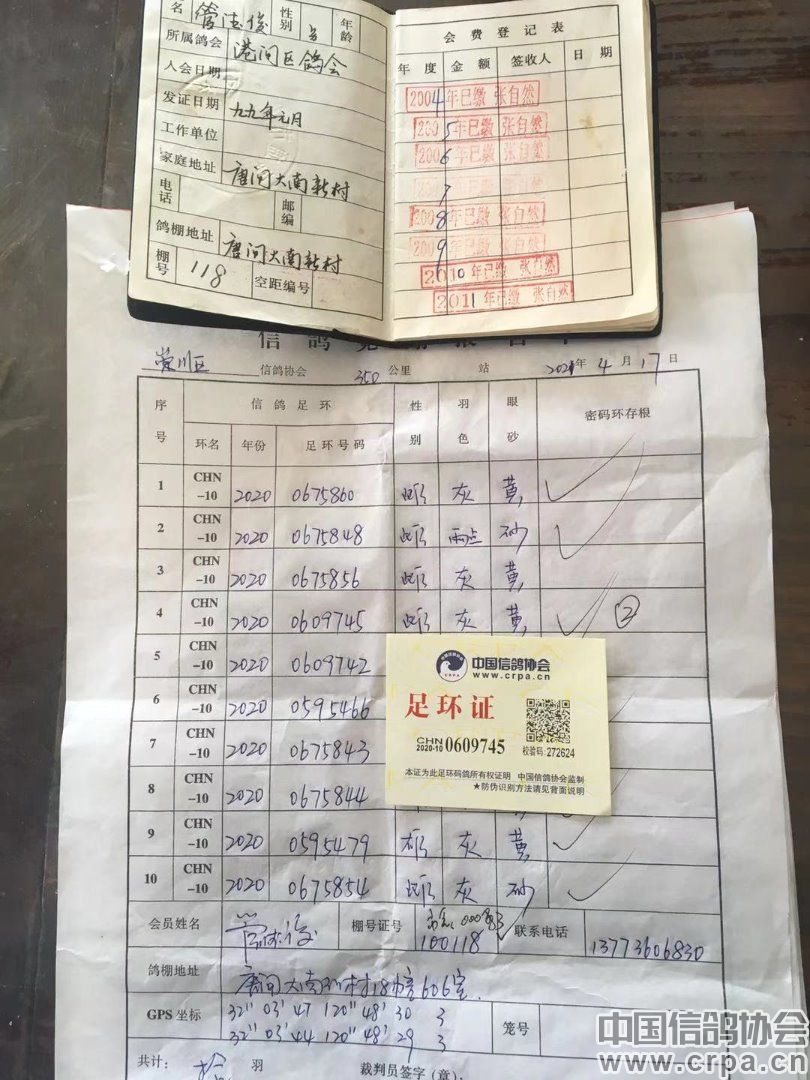 名 管法俊 性别 年龄
所属鸽会 港闸区鸽会
入会日期
发证日期 九九年元月
工作单位
家庭地址 唐闸大南新村
电话 邮编
鸽棚地址 唐闸大南新村
棚号 118 空距编号
会费登记表
年度 金额 签收人 日期
2004年已缴 张自然
2005年已缴 张自然
2006年已缴 张自然
7
2008年已缴 张自然
2009年已缴 张自然
2010年已缴 张自然
2011年已缴 张自然
崇川区 信鸽协会 350 公里 站 2021年4月17日
序号 信鸽足环 性别 羽色 眼砂 密码环存根
环名 年份 足环号码
1 CHN-10 2020 0675860 雌 灰 黄
2 CHN-10 2020 0675848 雌 雨点 砂
3 CHN-10 2020 0675856 雌 灰 黄
4 CHN-10 2020 0609745 雌 灰 黄 ②
5 CHN-10 2020 0609742
6 CHN-10 2020 0595466
7 CHN-10 2020 0675843
8 CHN-10 2020 0675844
9 CHN-10 2020 0595479 雄 灰 黄
10 CHN-10 2020 0675854 雌 灰 砂
中国信鸽协会
www.crpa.cn
CRPA
足环证
CHN 2020-10 0609745 校验码:272624
本证为此足环码鸽所有权证明 中国信鸽协会监制
★防伪识别方法请见背面说明
会员姓名 棚号证号 100118 联系电话 13773606830
鸽棚地址 唐闸大南新村18幢606室
GPS 坐标 32" 03' 47 120" 48' 30 3
32" 03' 44 120" 48' 29 3
笼号
共计: 羽 裁判员签字(章):
中国信鸽协会
www.crpa.cn